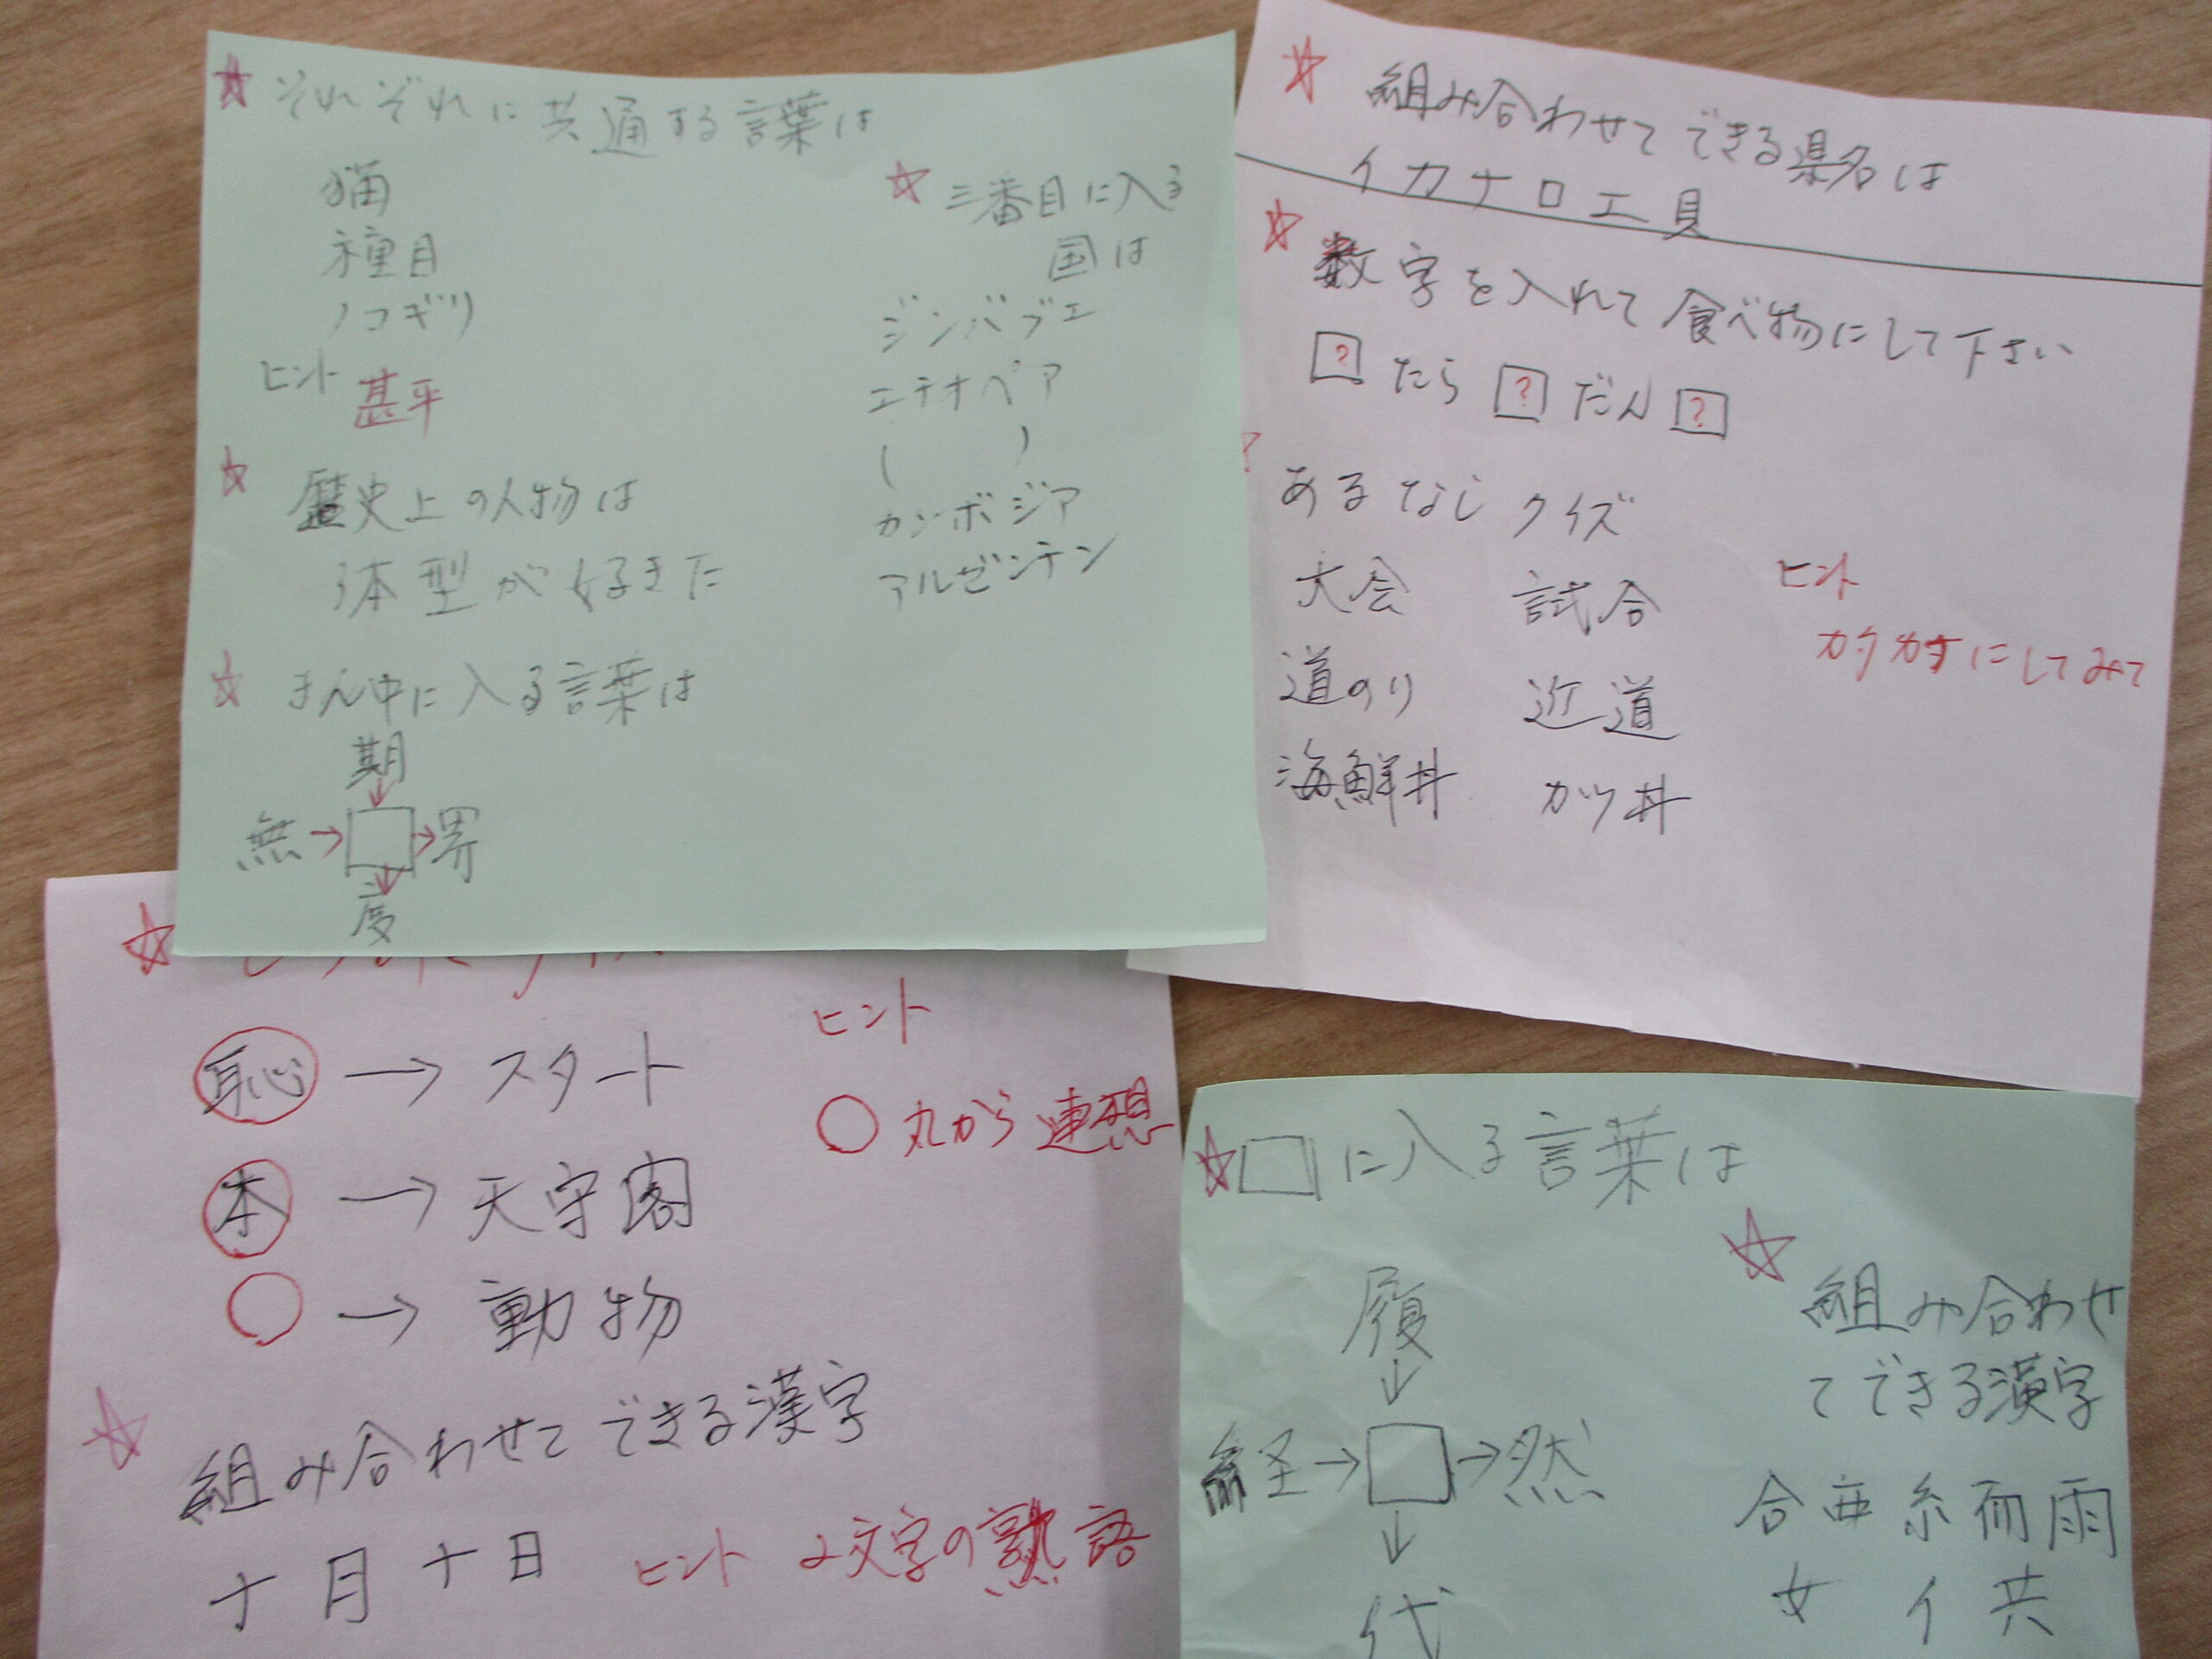 それぞれに共通する言葉は
猫
種目
ノコギリ
ヒント 甚平
歴史上の人物は
体型が好きだ
まん中に入る言葉は
期
無→□→界
度
三番目に入る
国は
ジンバブエ
エチオペア
( )
カンボジア
アルゼンテン
組み合わせてできる県名は
イカナロエ貝
数字を入れて食べ物にして下さい
?たら?だん?
あるなしクイズ
大会 試合
道のり 近道
海鮮丼 カツ丼
ヒント
カタカナにしてみて
恥→スタート
本→天守閣
○→動物
ヒント
○丸から連想
組み合わせてできる漢字
十月十日 ヒント 2文字の熟語
□に入る言葉は
履
↓
経→□→然
↓
代
組み合わせ
てできる漢字
合亜糸而雨
女イ共